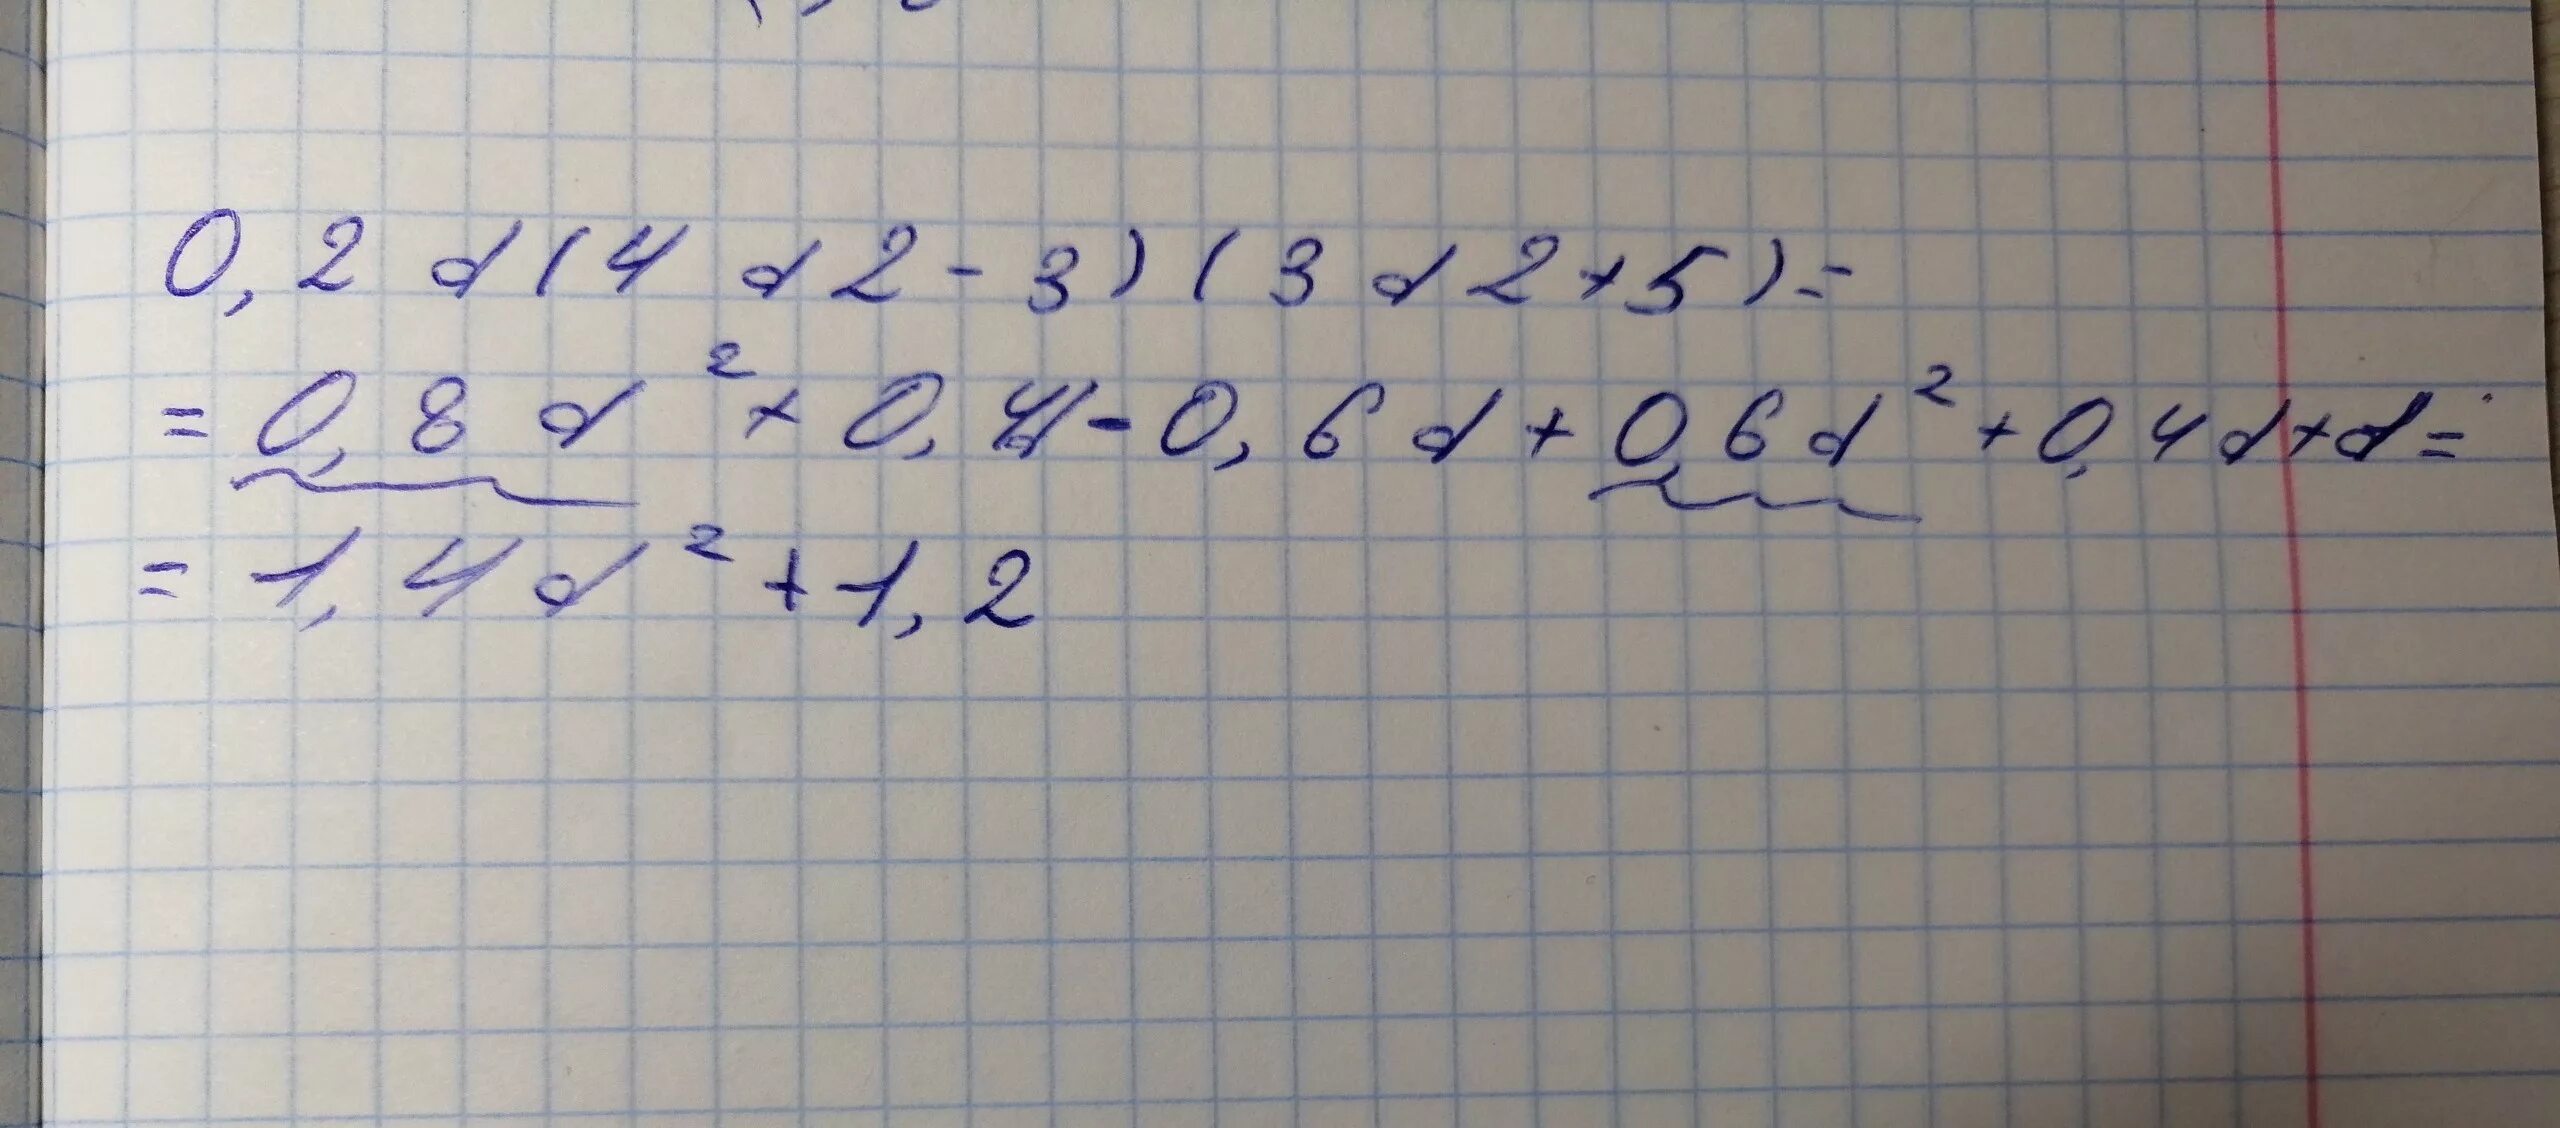 0,2 d(4 d2-3)(3 d2+5)=
=0,8 d²+0,4d-0,6 d+0,6d²+0,4d+d=
=1,4d²+1,2